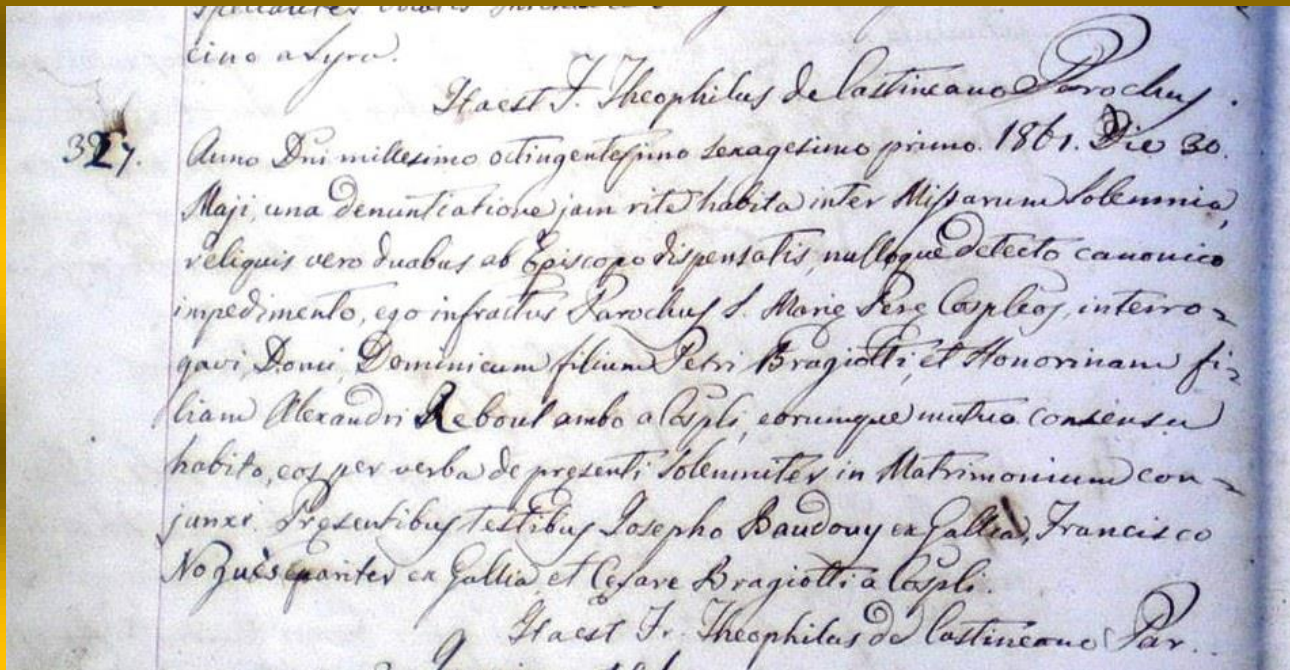 cino a Lyra.
Ita est F. Theophilus de Castineano Parochus.
327. Anno Dni millesimo octingentesimo sexagesimo primo. 1861. Die 30.
Maji, una denuntiatione jam rite habita inter Missarum Solemnia,
reliquis vero duabus ab Episcopo dispensatis, nulloque detecto canonico
impedimento, ego infractus Parochus S. Marię Perę Cospleos, interro=
gavi, Domi, Dominicum filium Petri Bragiotti, et Honorinam fi=
liam Alexandri Reboul ambo a Cospli, eorumque mutuo consensu
habito, eos per verba de pręsenti Solemniter in Matrimonium con=
junxi. Pręsentibus testibus Josepho Baudouy ex Gallia, Francisco
Noguès pariter ex Gallia, et Cesare Bragiotti a Cospli.
Ita est Fr. Theophilus de Castineano Par.